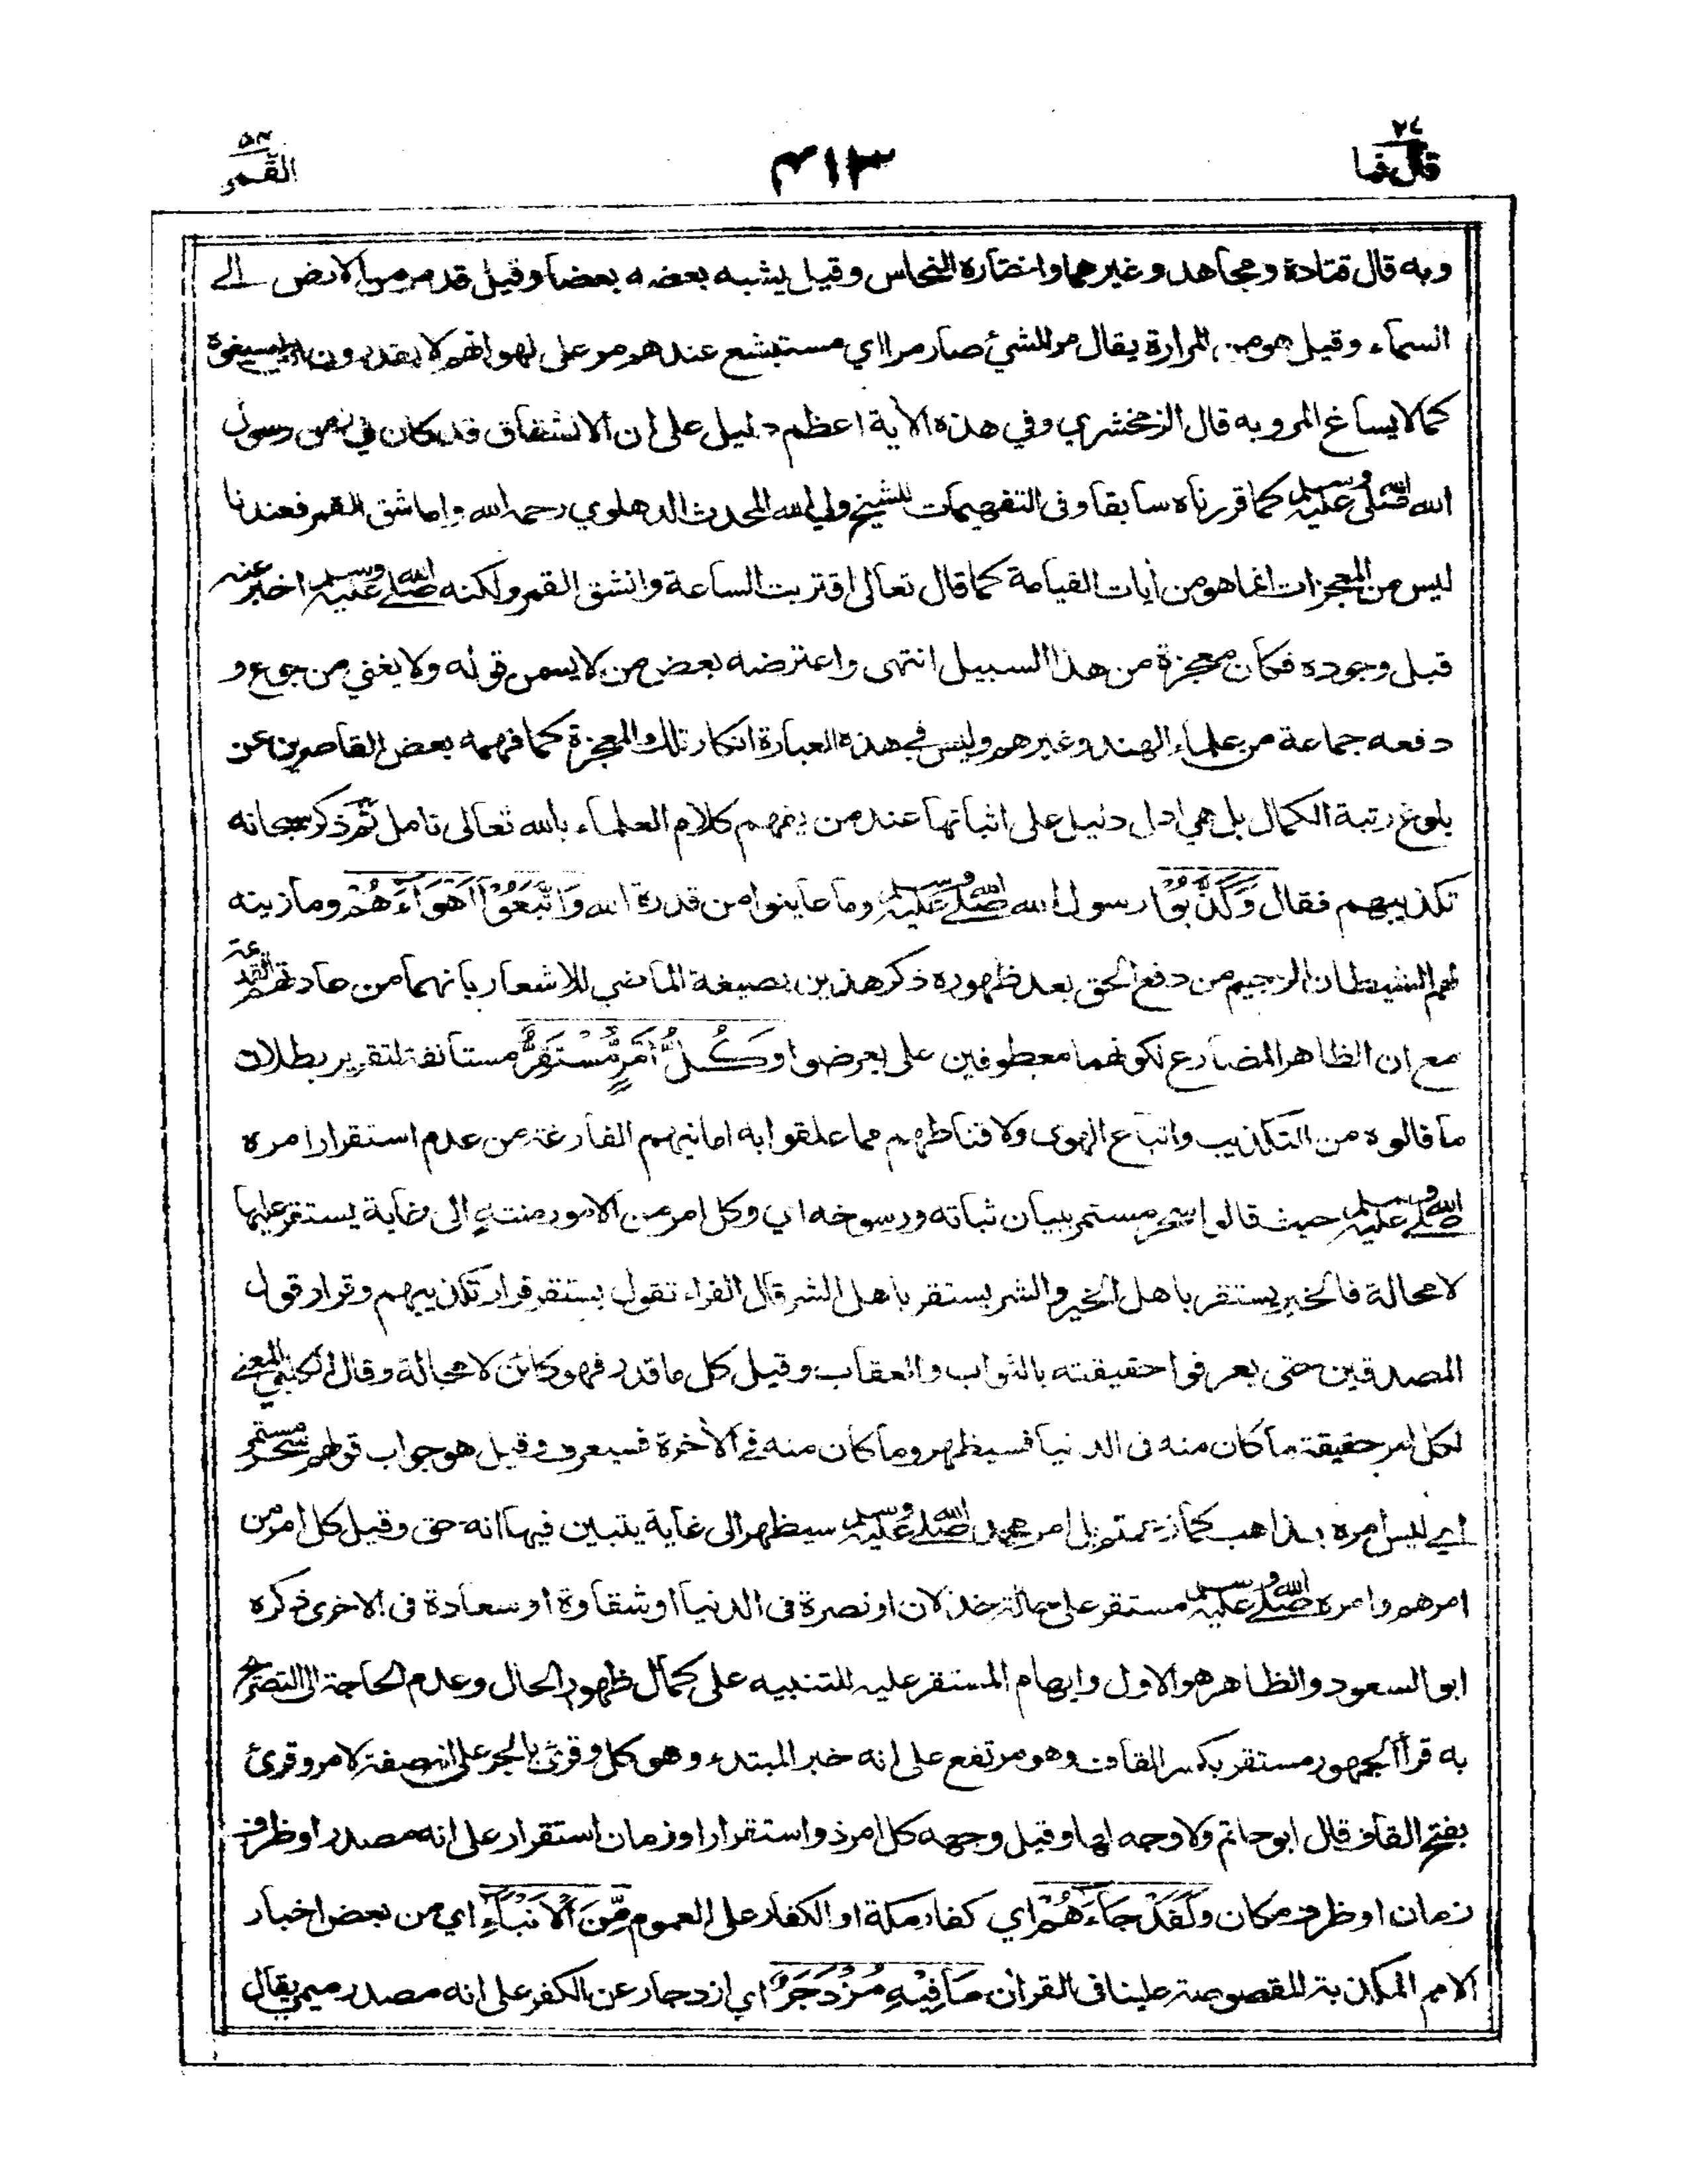 قال فما ٢٧
٤١٣
القمر ٥٤
وبه قال قتادة ومجاهد وغيرهما واختاره النحاس وقيل يشبه بعضه بعضا وقيل قد مر من الارض الى
السماء وقيل هو من المرارة يقال مر الشيئ صار مرا اي مستبشع عندهم مر على لهواتهم لا يقدرون ان يسيغوه
كما لا يساغ المر وبه قال الزمخشري وفي هذه الأية اعظم دليل على ان الانشقاق قد كان في زمن رسول
الله صلى الله عليه وسلم كما قررناه سابقا وفى التفهيمات للشيخ ولي الله المحدث الدهلوي رحمه الله واما شق القمر فعندنا
ليس من المعجزات انما هو من أيات القيامة كما قال تعالى اقتربت الساعة وانشق القمر ولكنه صلى الله عليه وسلم اخبر عنه
قبل وجوده فكان معجزة من هذا السبيل انتهى واعترضه بعض من لا يسمن قوله ولا يغني من جوع و
دفعه جماعة من علماء الهند وغيرهم وليس في هذه العبارة انكار تلك المعجزة كما فهمه بعض القاصرين عن
بلوغ رتبة الكمال بل هي ادل دليل على اثباتها عند من يفهم كلام العلماء بالله تعالى تامل ثم ذكر سبحانه
تكذيبهم فقال وَكَذَّبُوْا رسول الله صلى الله عليه وسلم وما عاينوا من قدرة الله وَاتَّبَعُوْٓا اَهْوَآءَهُمْ وما زينه
لهم الشيطان الرجيم من دفع الحق بعد ظهوره ذكر هذين بصيغة الماضي للاشعار بانهما من عادتهم القديمة
مع ان الظاهر المضارع لكونهما معطوفين على يعرضوا وَكُلُّ اَمْرٍ مُّسْتَقِرٌّ مستأنفة لتقرير بطلان
ما قالوه من التكذيب واتباع الهوى ولاقناطهم مما علقوا به امانيهم الفارغة من عدم استقرار امره
صلى الله عليه وسلم حيث قالوا سحر مستمر ببيان ثباته ورسوخه اي وكل امر من الامور منته إلى غاية يستقر عليها
لا محالة فالخير يستقر باهل الخير والشر يستقر باهل الشر قال الفراء تقول يستقر قرار تكذيبهم وقرار قول
المصدقين حتى يعرفوا حقيقته بالثواب والعقاب وقيل كل ما قدر فهو كائن لا محالة وقال الكلبي المعنى
لكل امر حقيقة ما كان منه فى الدنيا فسيظهر وما كان منه في الأخرة فسيعرف وقيل هو جواب قولهم سحر مستمر
اي ليس امره بذاهب كما زعمتم بل امر محمد صلى الله عليه وسلم سيظهر الى غاية يتبين فيها انه حق وقيل كل امر من
امرهم وامره صلى الله عليه وسلم مستقر على حالة خذلان او نصرة فى الدنيا او شقاوة او سعادة فى الاخرى ذكره
ابو السعود والظاهر هو الاول وابهام المستقر عليه للتنبيه على كمال ظهور الحال وعدم الحاجة الى التصريح
به قرأ الجمهور مستقر بكسر القاف وهو مرتفع على انه خبر المبتدء وهو كل وقرئ بالجر على انه صفة لامر وقرئ
بفتح القاف قال ابو حاتم ولا وجه لها وقيل وجهه كل امر ذو استقرار او زمان استقرار على انه مصدر او ظرف
زمان او ظرف مكان وَلَقَدْ جَآءَهُمْ اي كفار مكة او الكفار على العموم مِّنَ الْاَنْبَآءِ اي من بعض اخبار
الامم المكذبة المقصوصة علينا فى القرأن مَا فِيْهِ مُزْدَجَرٌ اي ازدجار عن الكفر على انه مصدر ميمي يقال